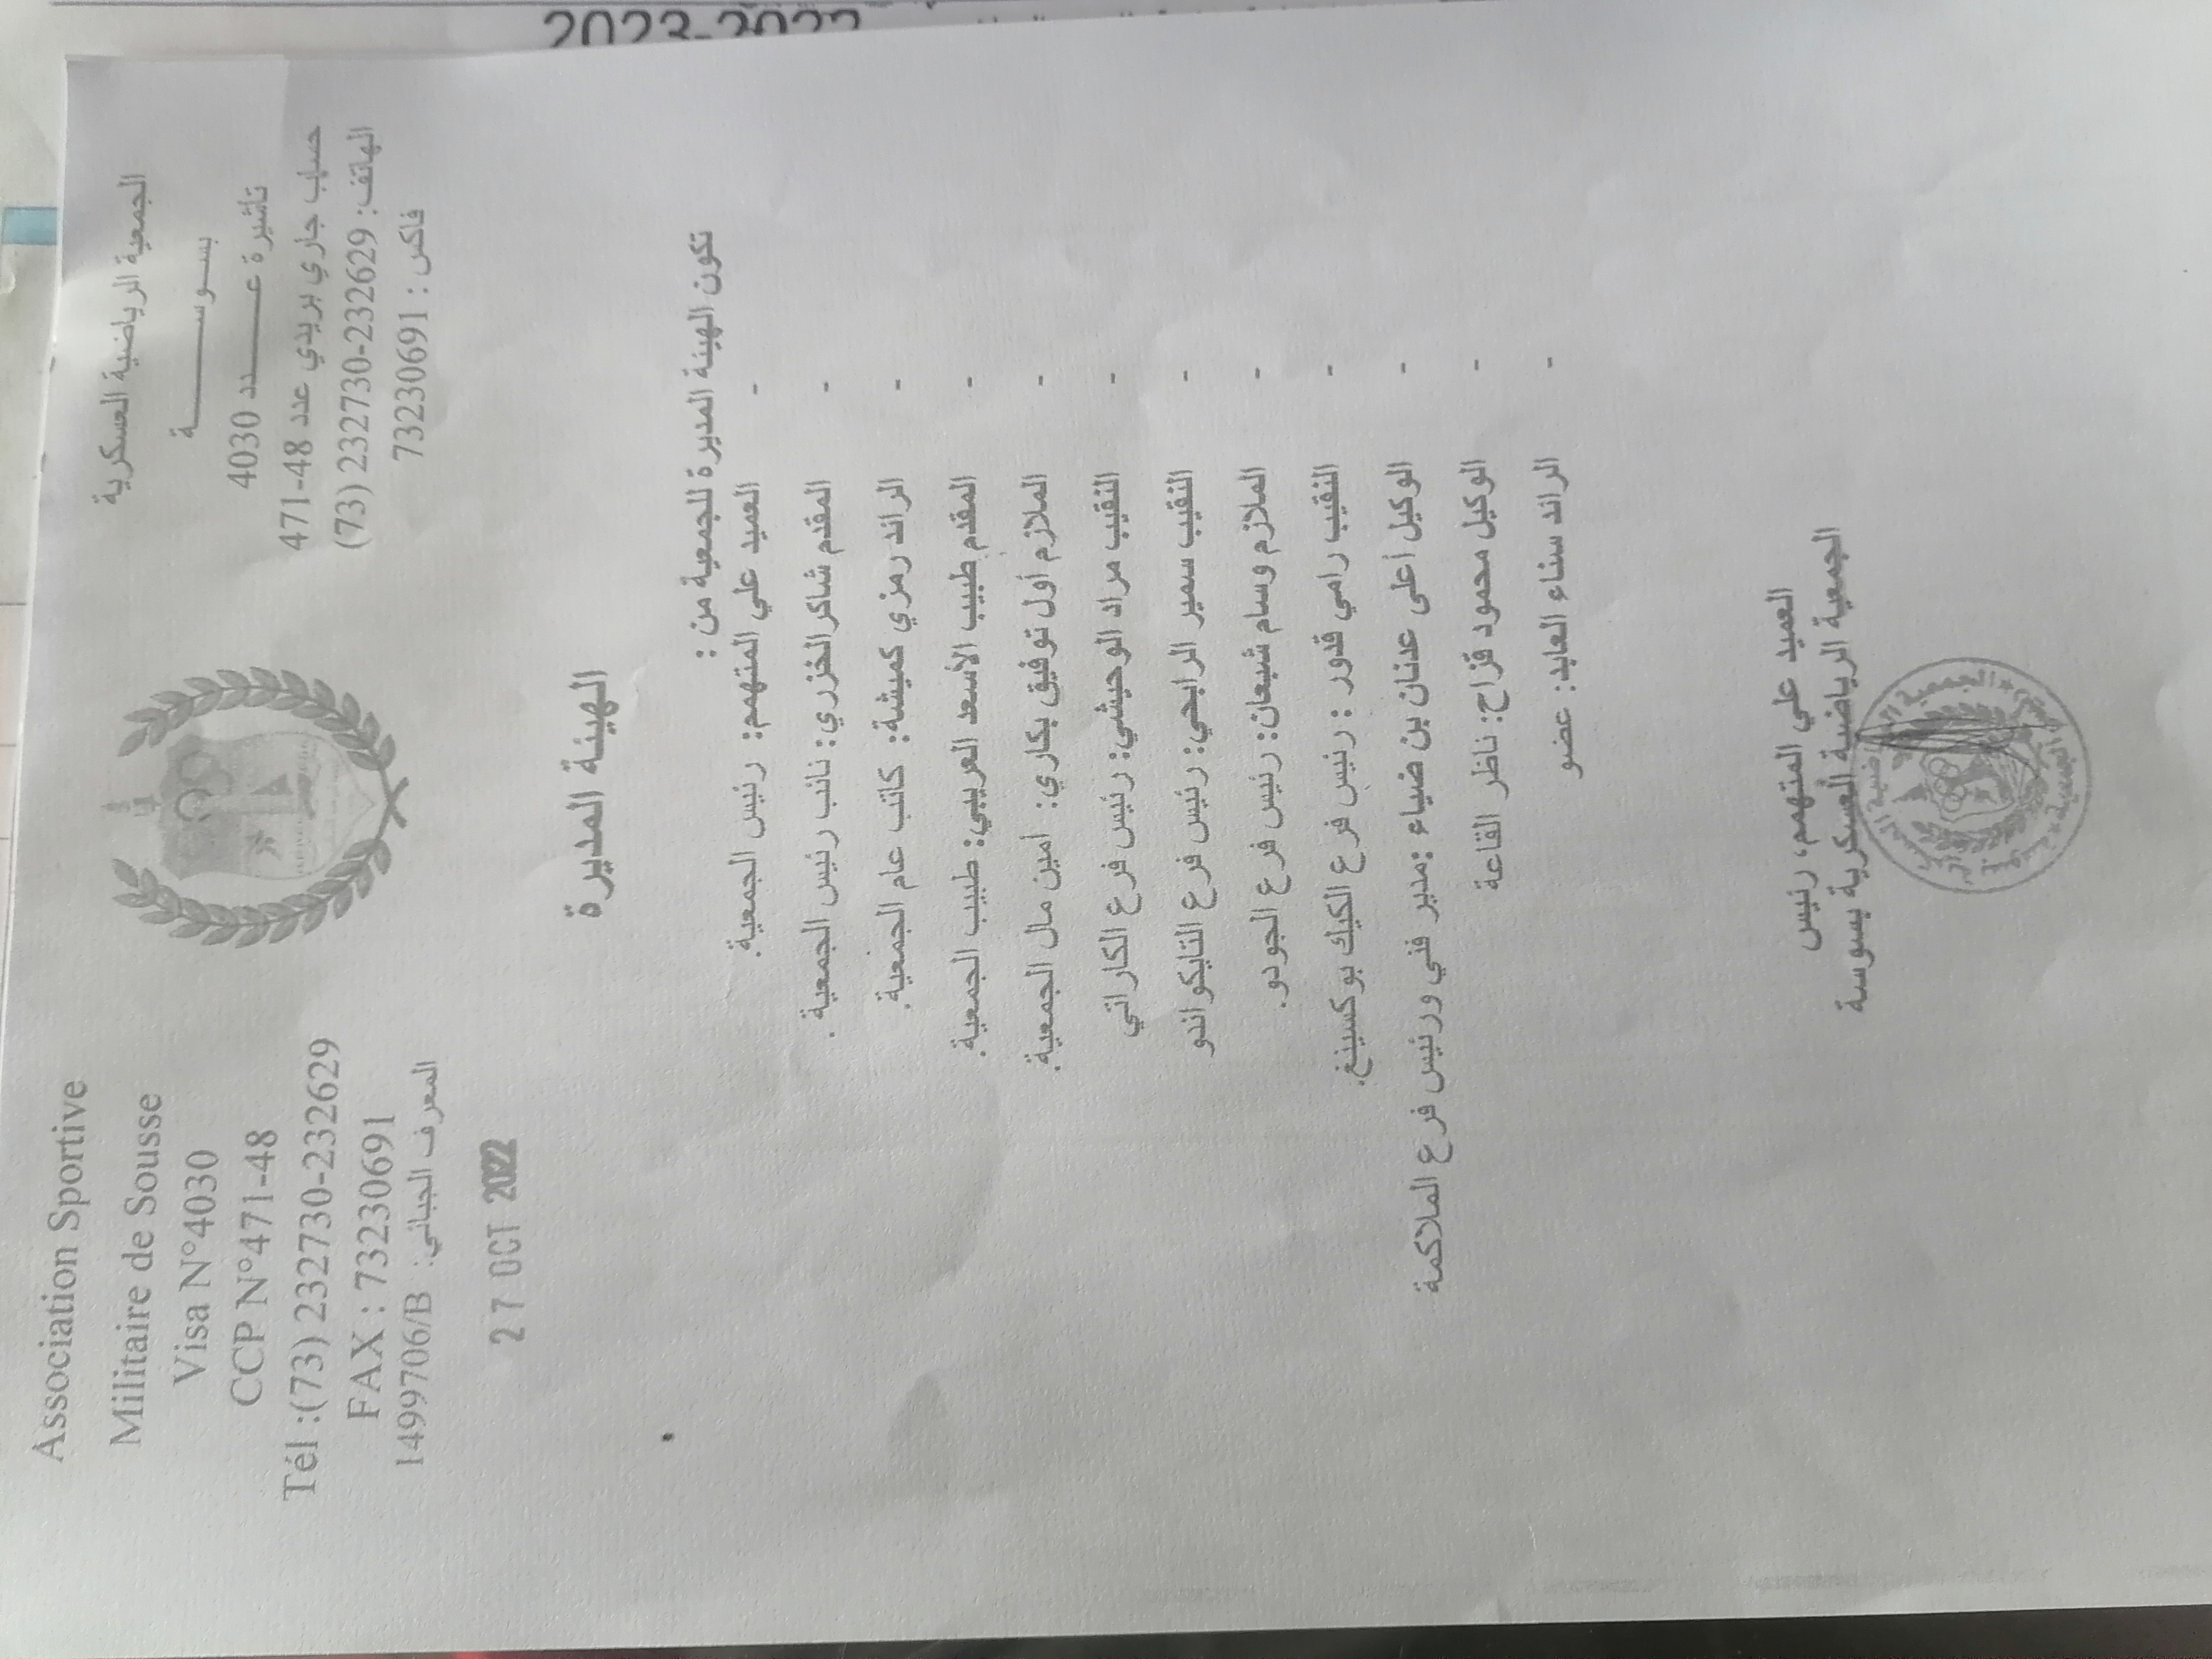 2023-2022
Association Sportive
Militaire de Sousse
Visa N°4030
CCP N°471-48
Tél :(73) 232730-232629
FAX : 73230691
1499706/B المعرف الجبائي:
الجمعية الرياضية العسكرية
بســوســـــــــــة
تأشيرة عـــــــدد 4030
حساب جاري بريدي عدد 48-471
الهاتف: 232629-232730 (73)
فاكس : 73230691
27 OCT 2022
الهيئة المديرة
تكون الهيئة المديرة للجمعية من :
- العميد علي المتهمم: رئيس الجمعية.
- المقدم شاكر الخزري: نائب رئيس الجمعية .
- الرائد رمزي كميشة: كاتب عام الجمعية.
- المقدم طبيب الأسعد العريبي: طبيب الجمعية.
- الملازم أول توفيق بكاري: امين مال الجمعية.
- النقيب مراد الوحيشي: رئيس فرع الكاراتي
- النقيب سمير الرابحي: رئيس فرع التايكواندو
- الملازم وسام شيعان: رئيس فرع الجودو.
- النقيب رامي قدور : رئيس فرع الكيك بوكسينغ.
- الوكيل أعلى عدنان بن ضياء :مدير فني ورئيس فرع الملاكمة
- الوكيل محمود قزاح: ناظر القاعة
- الرائد سناء العابد: عضو
العميد علي المتهمم، رئيس
الجمعية الرياضية العسكرية بسوسة